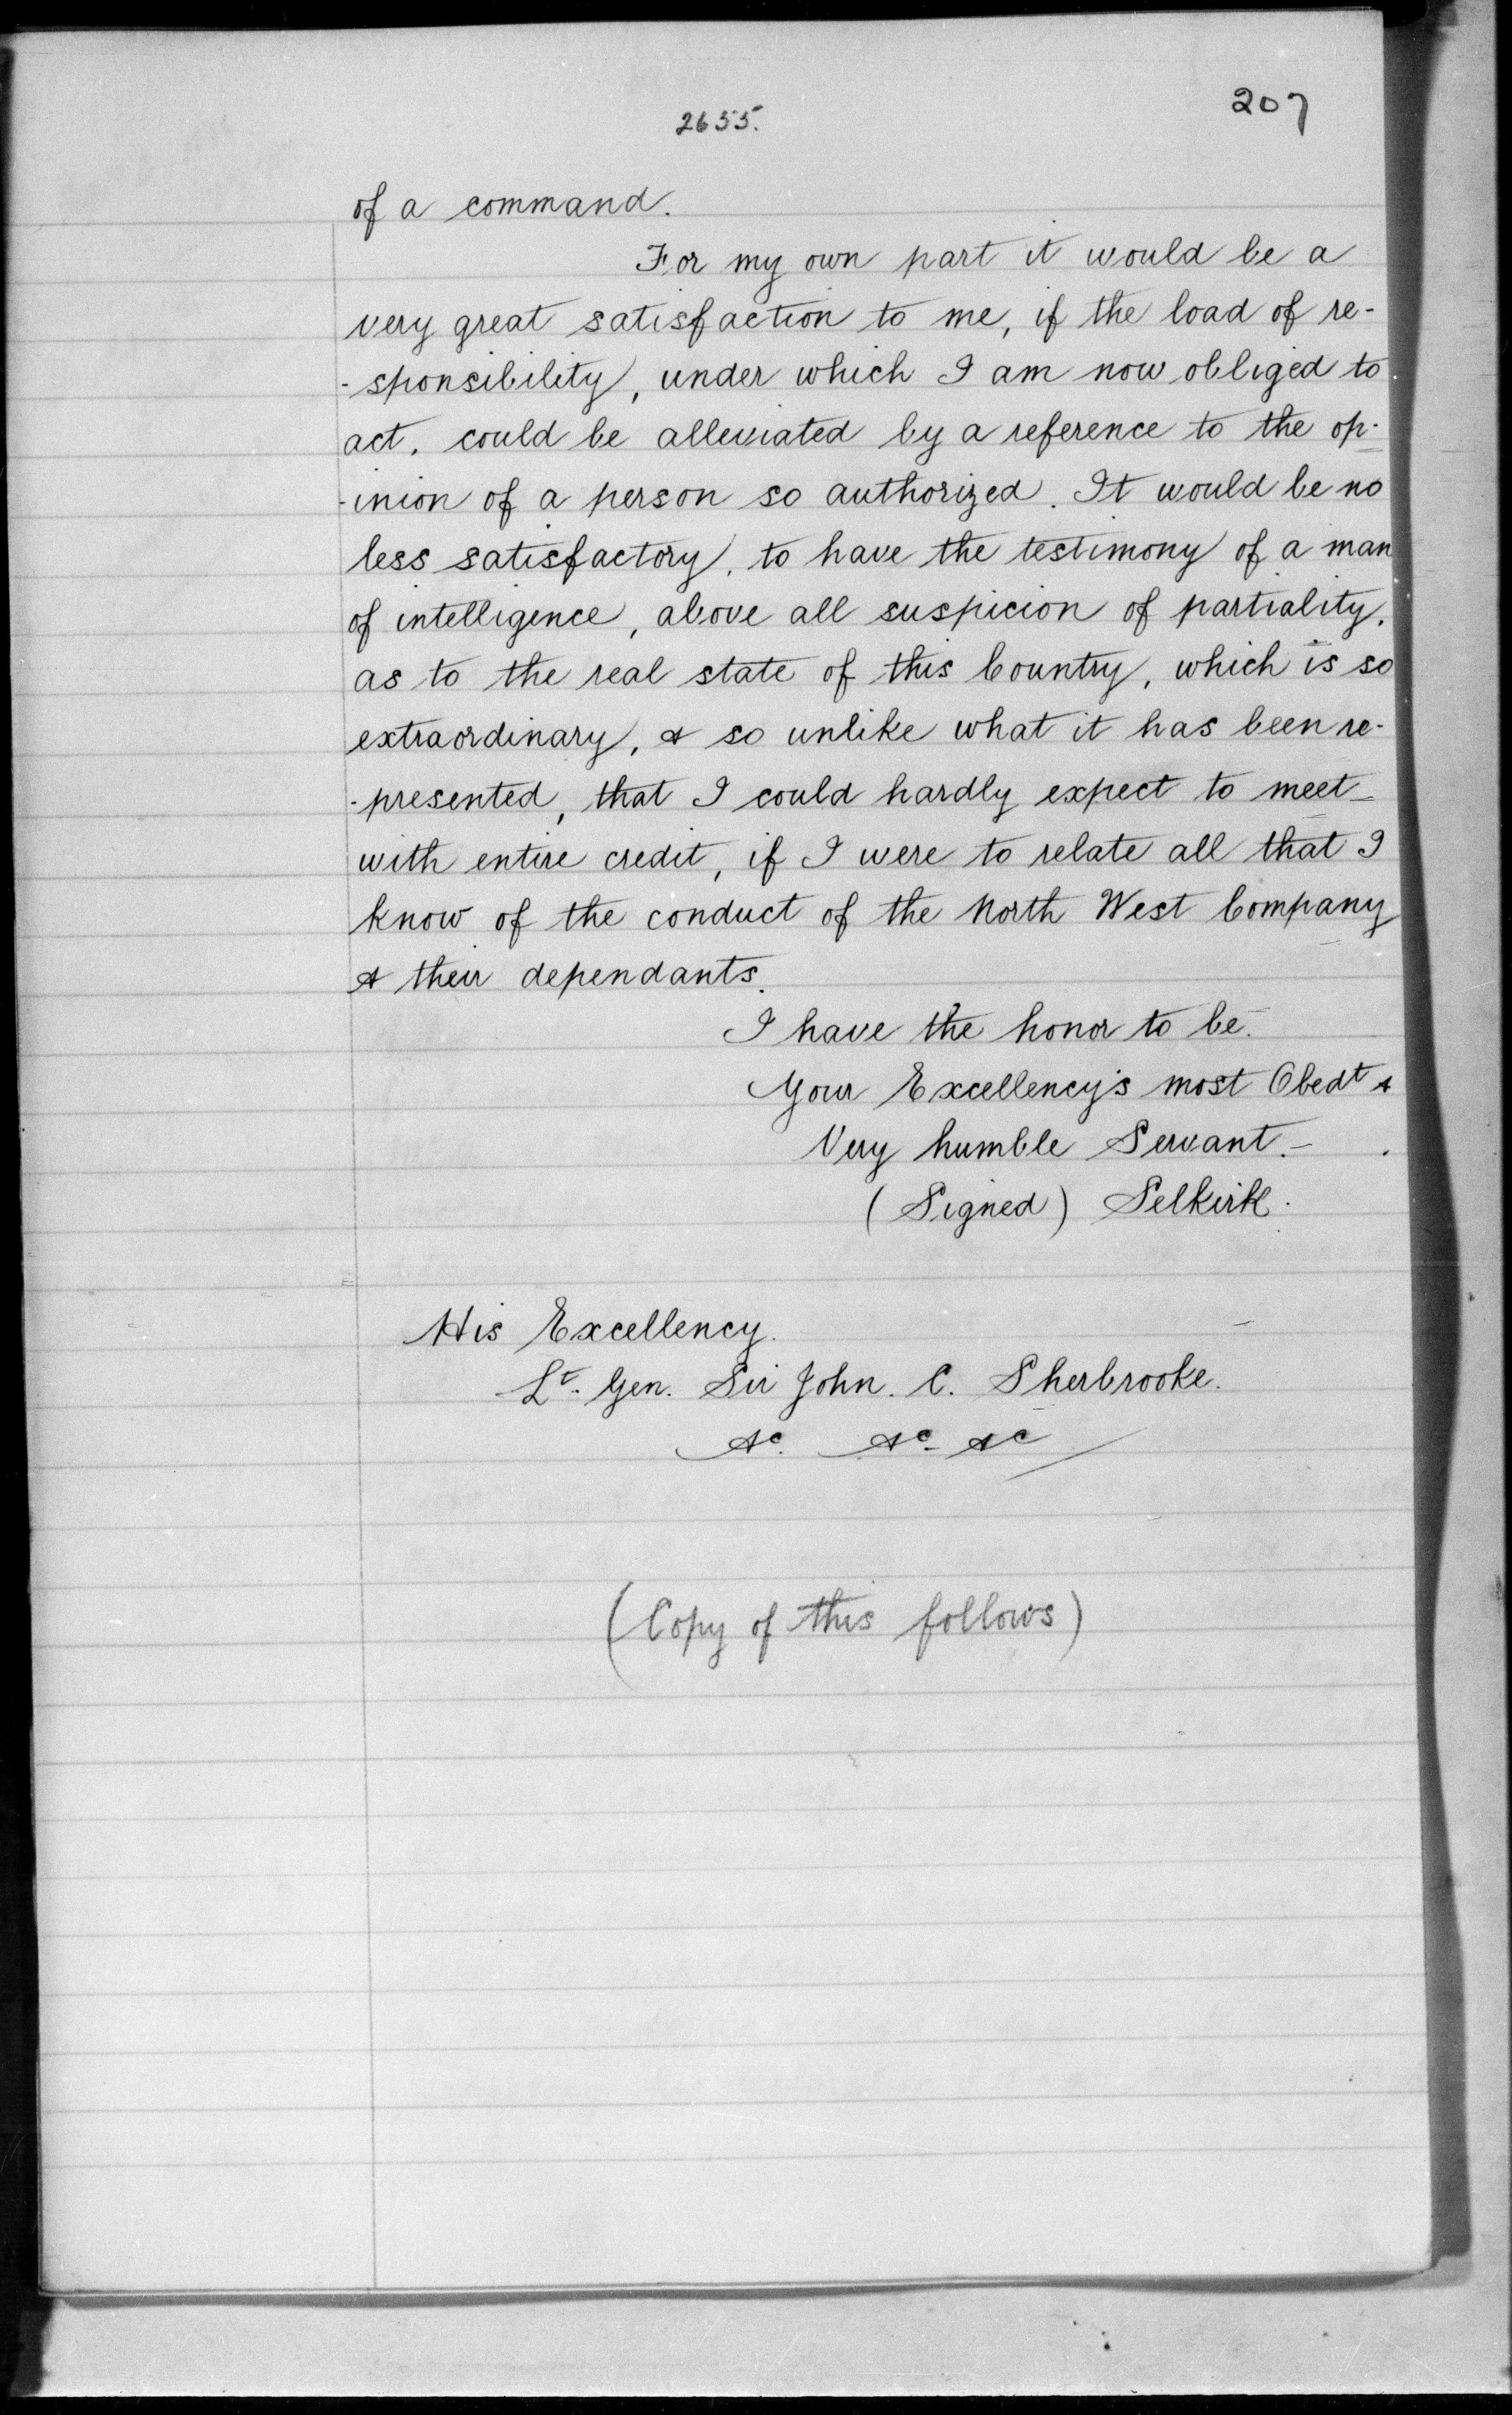 207
2655.
of a command.
For my own part it would be a
very great satisfaction to me, if the load of re-
-sponsibility, under which I am now obliged to
act, could be alleviated by a reference to the op-
-inion of a person so authorized. It would be no
less satisfactory, to have the testimony of a man
of intelligence, above all suspicion of partiality,
as to the real state of this Country, which is so
extraordinary, & so unlike what it has been re-
-presented, that I could hardly expect to meet
with entire credit, if I were to relate all that I
know of the conduct of the North West Company
& their dependants.
I have the honor to be.
Your Excellency's most Obedt &
Very humble Servant.-
(Signed) Selkirk.
His Excellency.
Lt. Gen. Sir John. C. Sherbrooke.
&c. &c- &c
(Copy of this follows)